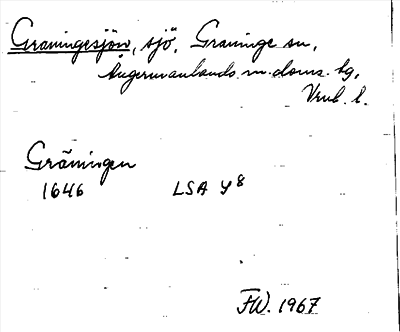 Graningesjön, sjö, Graninge sn,
Ångermanlands m. doms. tg,
Vnl. l.
Gråningen
1646 LSA Y8
FW. 1967